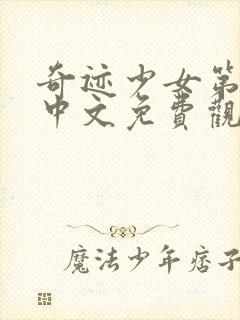 奇迹少女第
中文免費觀
魔法少年痞子